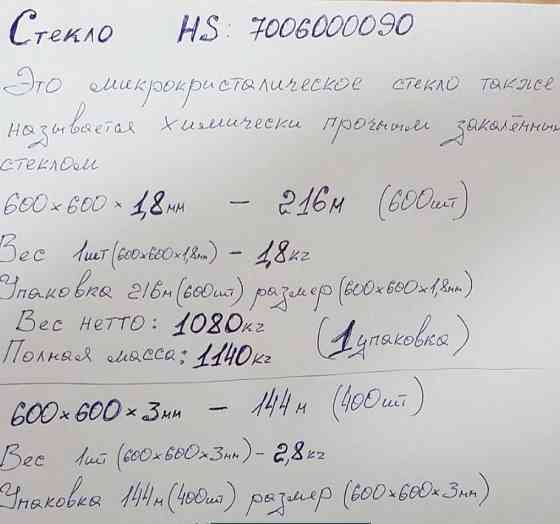 Стекло HS: 7006000090
Это микрокристалическое стекло также
называется химически прочным закалённым
стеклом
600×600×1,8мм — 216м (600шт)
Вес 1шт (600×600×1,8мм) - 1,8кг
Упаковка 216м (600шт) размер (600×600×1,8мм)
Вес нетто: 1080кг
(1 упаковка)
Полная масса: 1140кг
600×600×3мм — 144м (400шт)
Вес 1шт (600×600×3мм) - 2,8кг
Упаковка 144м (400шт) размер (600×600×3мм)